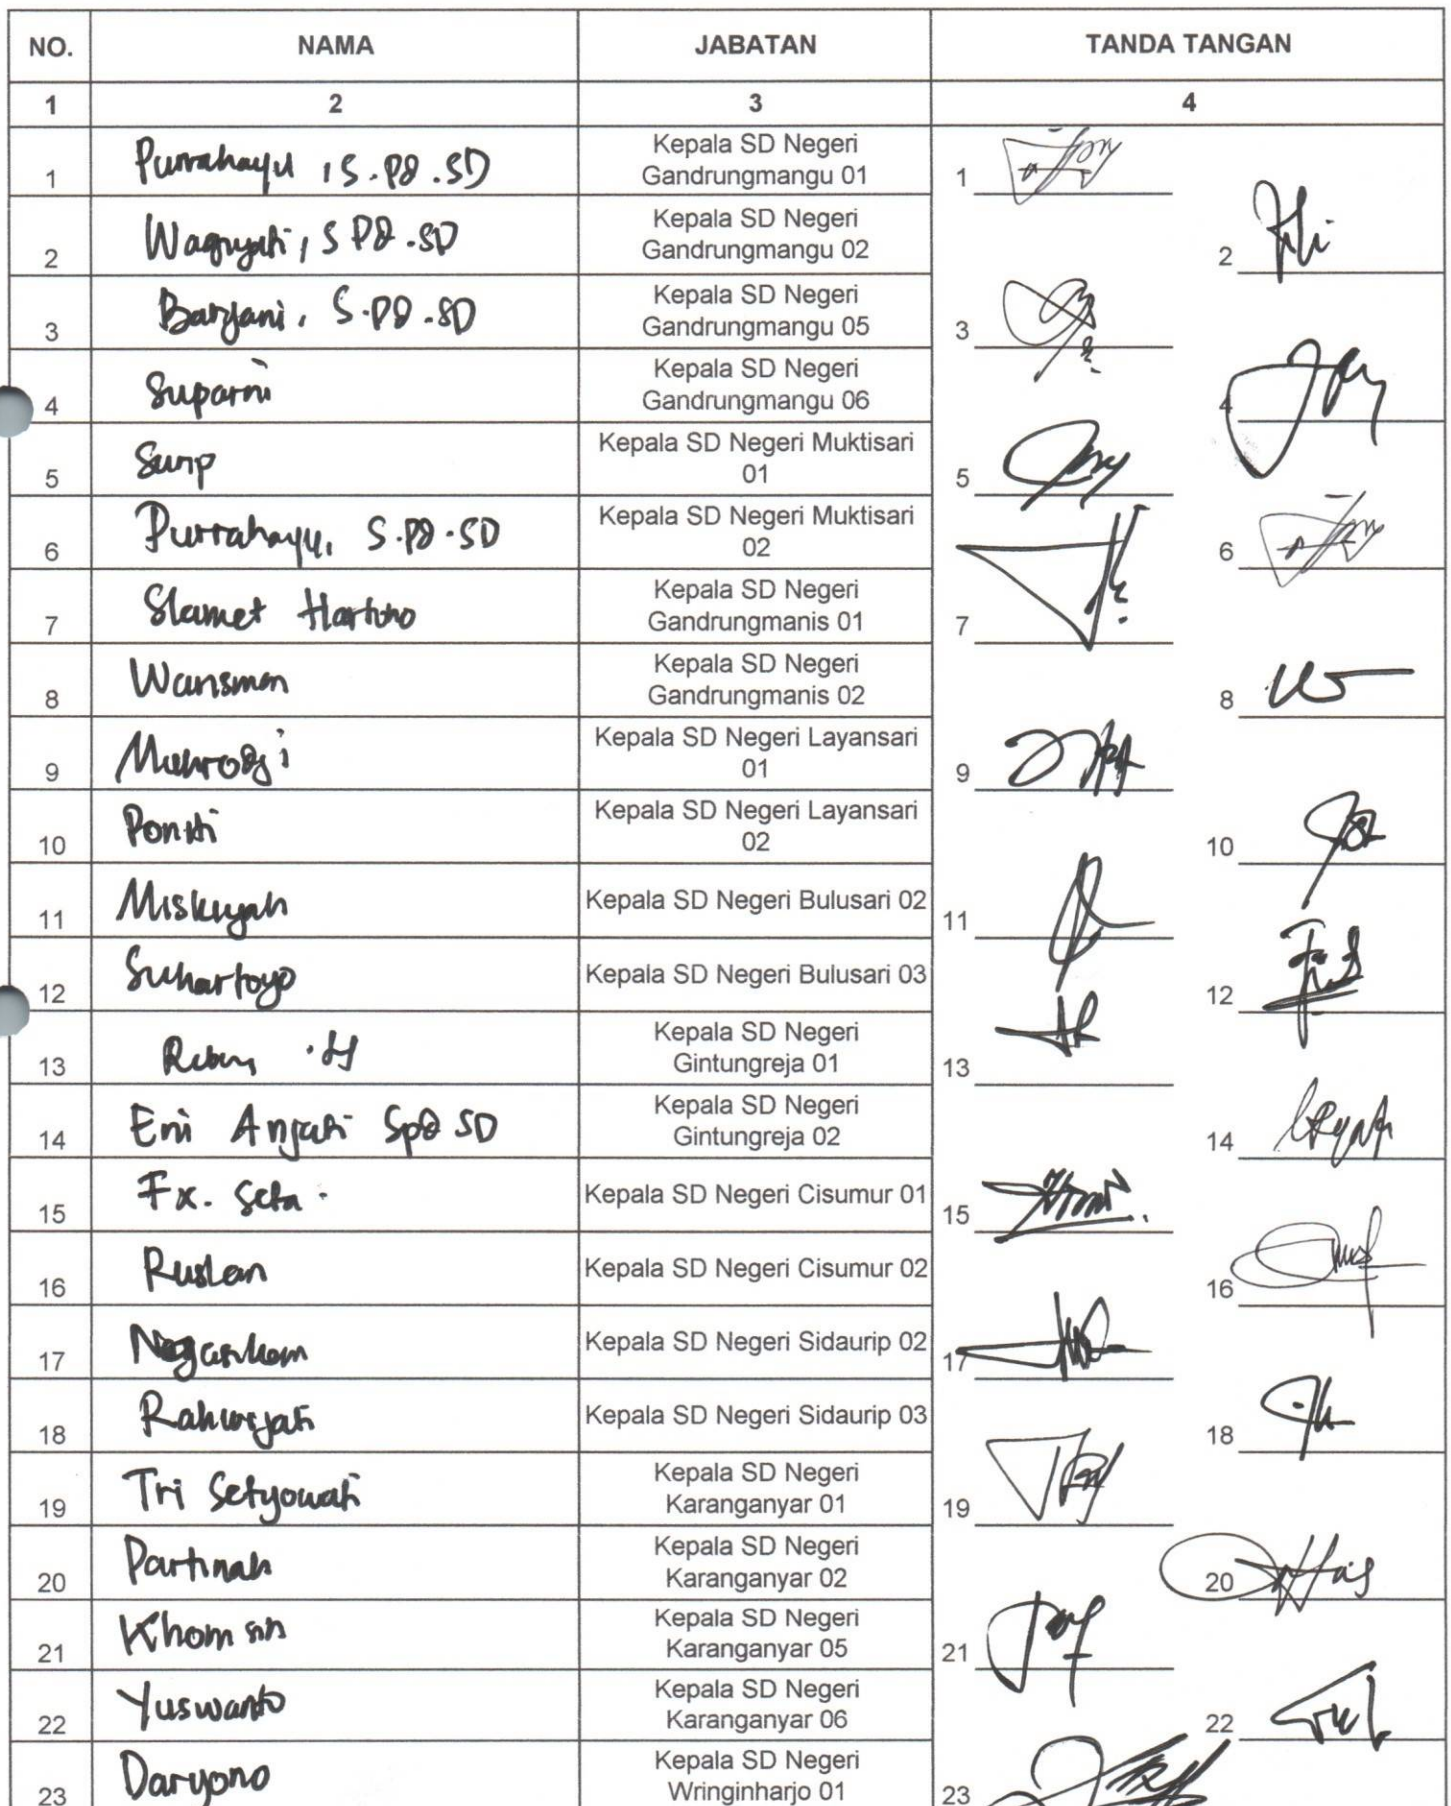 NO. NAMA JABATAN TANDA TANGAN
1 2 3 4
1 Purrahayu, S.Pd.SD Kepala SD Negeri Gandrungmangu 01 1
2 Waginyati, S Pd.SD Kepala SD Negeri Gandrungmangu 02 2
3 Baryani, S.Pd.SD Kepala SD Negeri Gandrungmangu 05 3
4 Suparni Kepala SD Negeri Gandrungmangu 06 4
5 Surip Kepala SD Negeri Muktisari 01 5
6 Purrahayu, S.Pd.SD Kepala SD Negeri Muktisari 02 6
7 Slamet Hartono Kepala SD Negeri Gandrungmanis 01 7
8 Warisman Kepala SD Negeri Gandrungmanis 02 8
9 Muhrodji Kepala SD Negeri Layansari 01 9
10 Kepala SD Negeri Layansari 02 10
11 Miskiyah Kepala SD Negeri Bulusari 02 11
12 Suhartoyo Kepala SD Negeri Bulusari 03 12
13 Kepala SD Negeri Gintungreja 01 13
14 Eni Anjati Spd SD Kepala SD Negeri Gintungreja 02 14
15 Fx. Seta Kepala SD Negeri Cisumur 01 15
16 Ruslan Kepala SD Negeri Cisumur 02 16
17 Kepala SD Negeri Sidaurip 02 17
18 Rahwiyati Kepala SD Negeri Sidaurip 03 18
19 Tri Setyowati Kepala SD Negeri Karanganyar 01 19
20 Partinah Kepala SD Negeri Karanganyar 02 20
21 Khomsin Kepala SD Negeri Karanganyar 05 21
22 Yuswanto Kepala SD Negeri Karanganyar 06 22
23 Daryono Kepala SD Negeri Wringinharjo 01 23